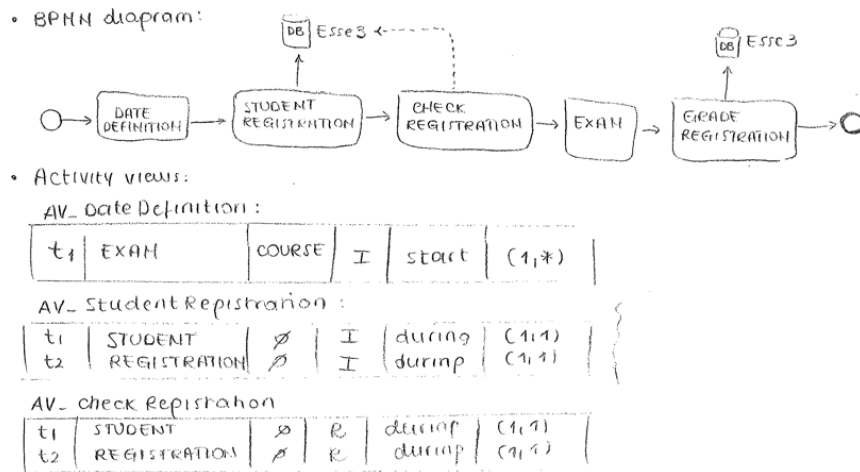 • BPMN diagram:
DB Esse3
DB Esse3
DATE DEFINITION
STUDENT REGISTRATION
CHECK REGISTRATION
EXAM
GRADE REGISTRATION
• Activity views:
AV_Date Definition:
t1 EXAM COURSE I start (1,*)
AV_Student Registration:
t1 STUDENT ∅ I during (1,1)
t2 REGISTRATION ∅ I during (1,1)
AV_Check Registration
t1 STUDENT ∅ R during (1,1)
t2 REGISTRATION ∅ R during (1,1)